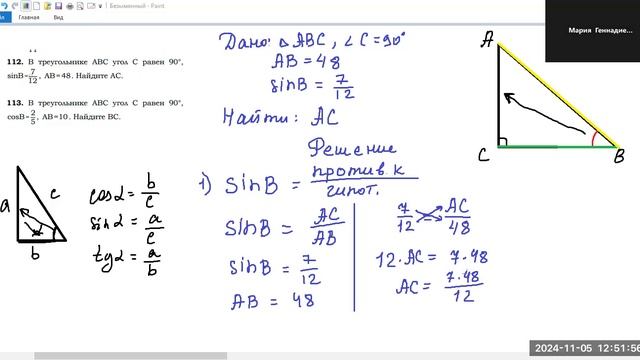 Безымянный - Paint
Файл Главная Вид
Мария Геннадие...
112. В треугольнике ABC угол C равен 90°,
sinB=7/12, AB=48. Найдите AC.
113. В треугольнике ABC угол C равен 90°,
cosB=2/5, AB=10. Найдите BC.
Дано: △ABC, ∠C=90°
AB=48
sinB = 7/12
Найти: AC
A
C
B
Решение
1) sinB = против.к/гипот.
sinB = AC/AB
sinB = 7/12
AB = 48
7/12 = AC/48
12·AC = 7·48
AC = 7·48/12
a
c
b
cosα = b/c
sinα = a/c
tgα = a/b
2024-11-05 12:51:56